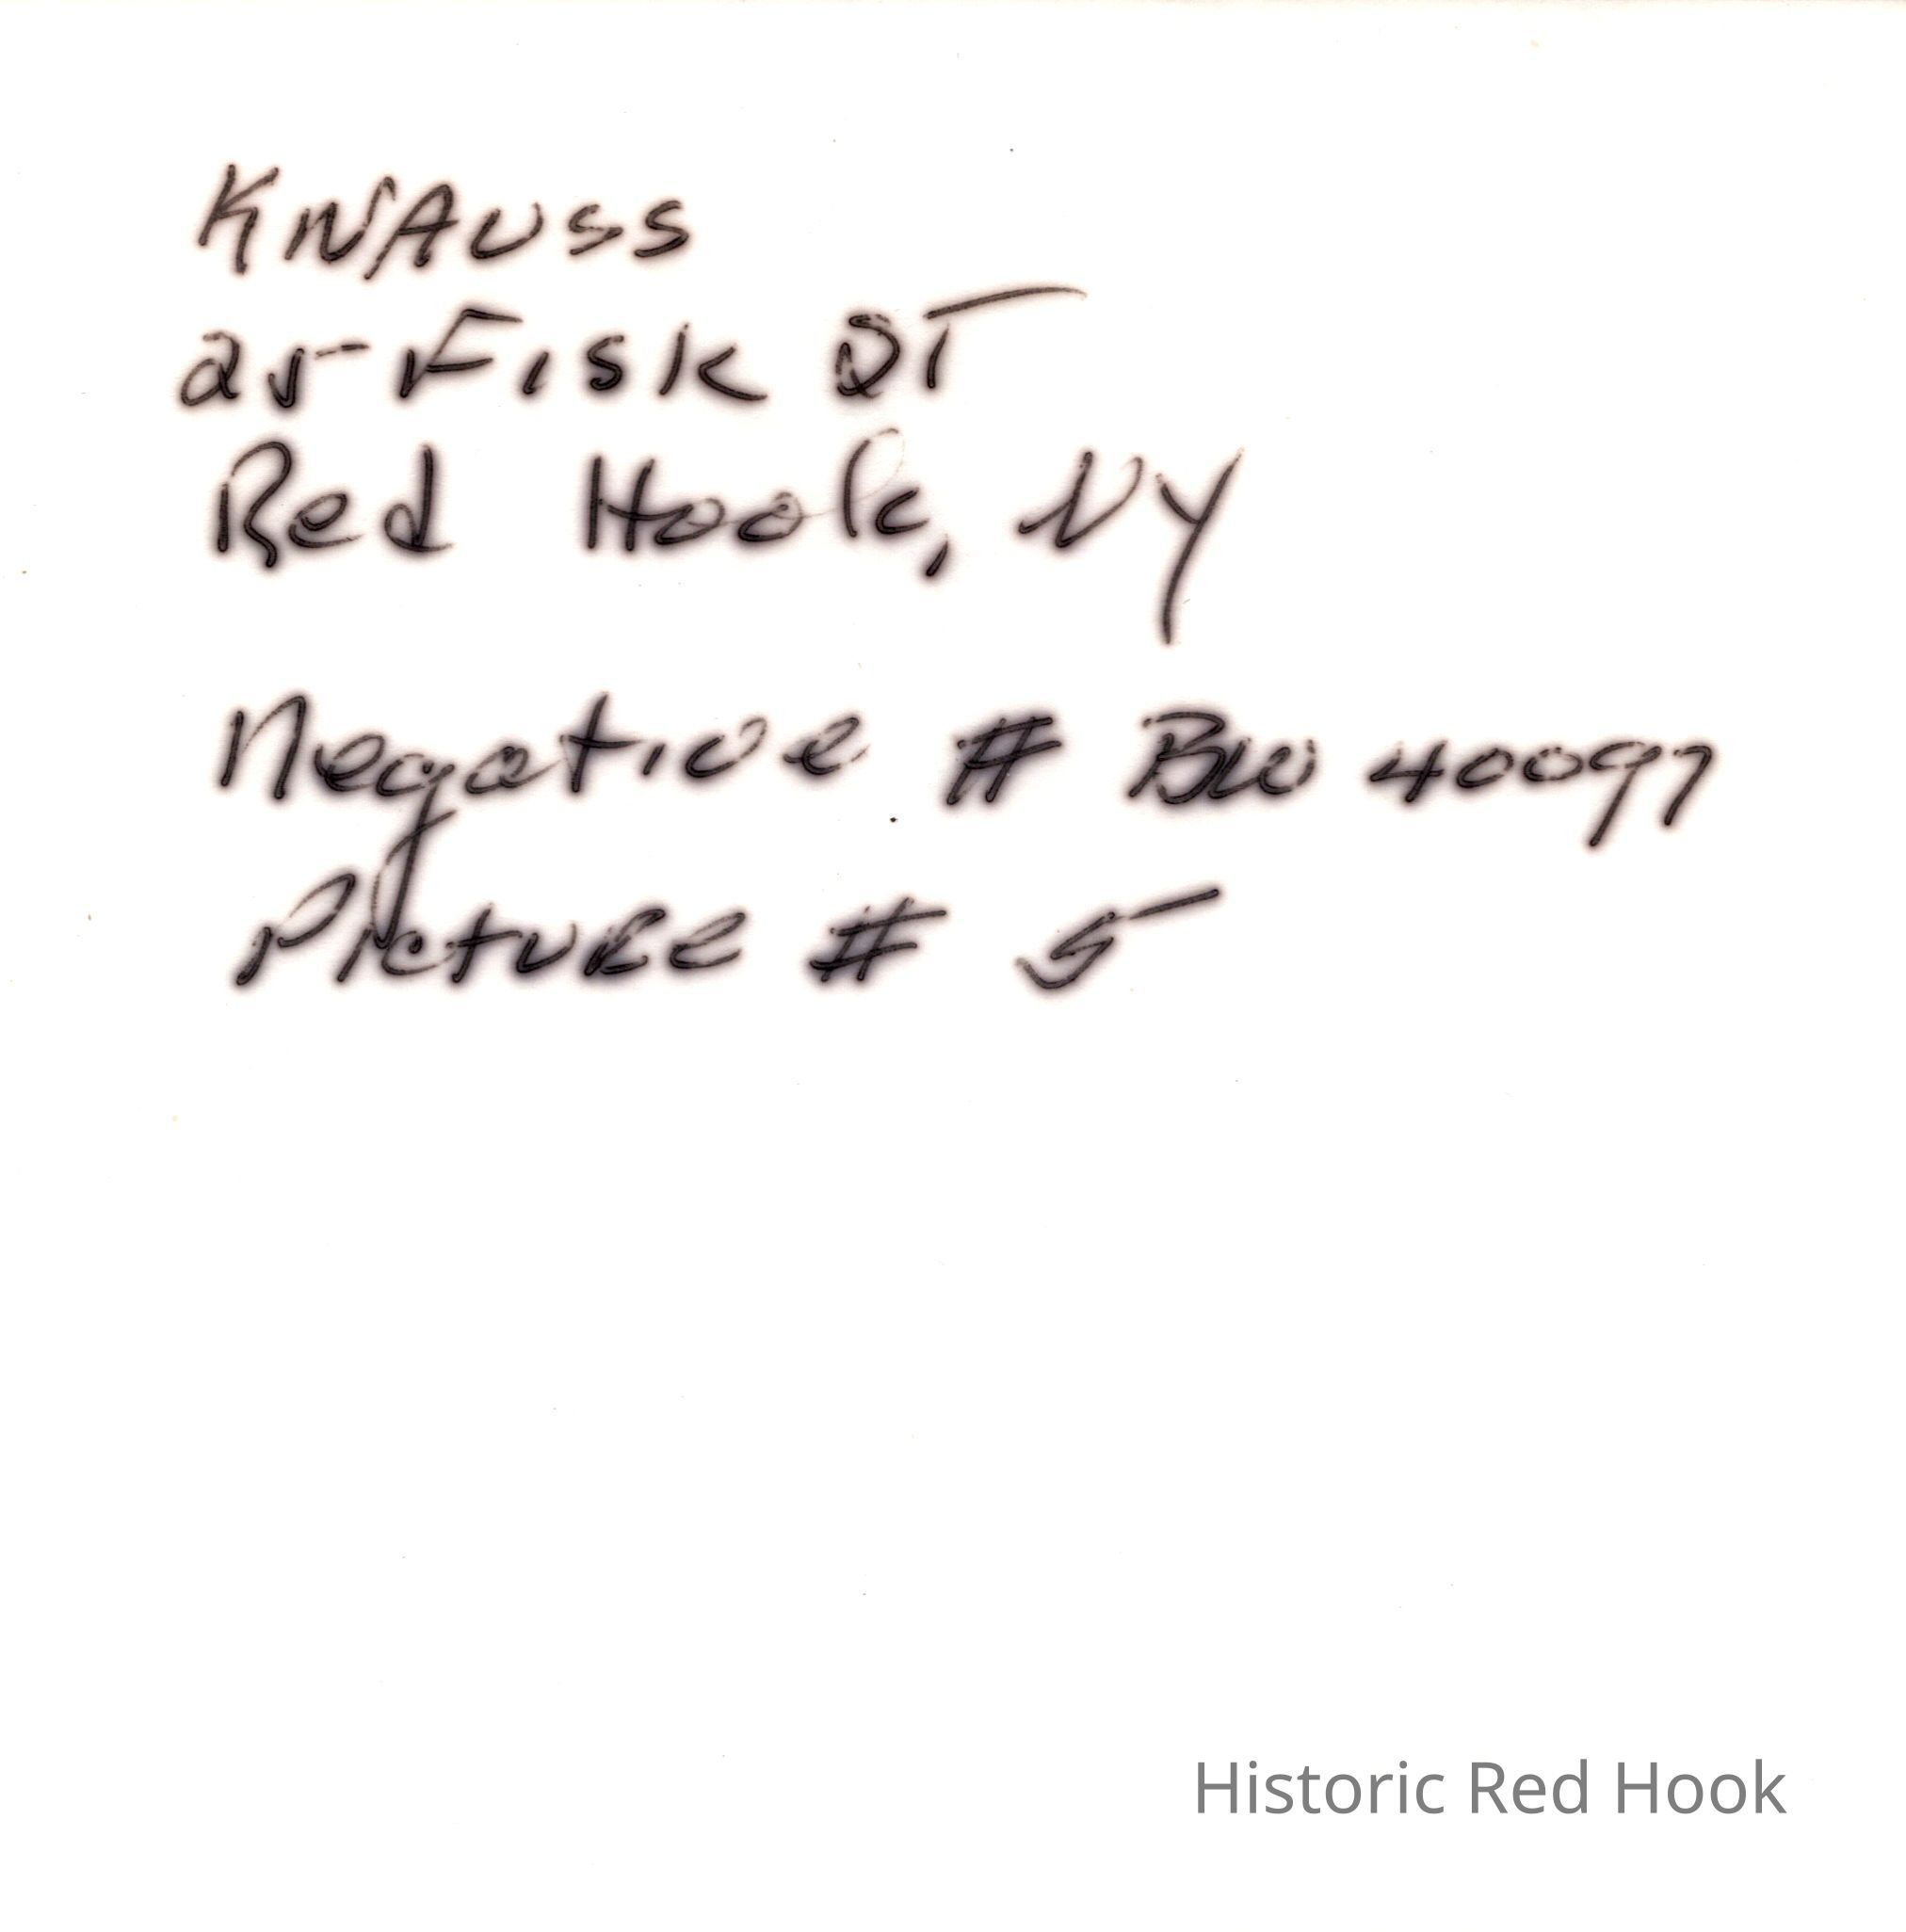 KNAUSS
25 Fisk ST
Red Hook, NY
Negative # BW 40097
Picture # 5
Historic Red Hook